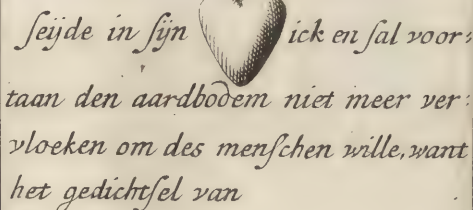 seijde in sijn ick en sal voor:
taan den aardbodem niet meer ver:
vloeken om des menschen wille, want
het gedichtsel van